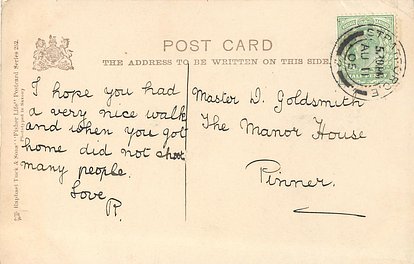 POST CARD
THE ADDRESS TO BE WRITTEN ON THIS SIDE.
I hope you had
a very nice walk
and when you got
home did not shoot
many people.
Love
R.
Master D. Goldsmith
The Manor House
Pinner.
Raphael Tuck & Sons'
Postcard Series 252.
AU
05